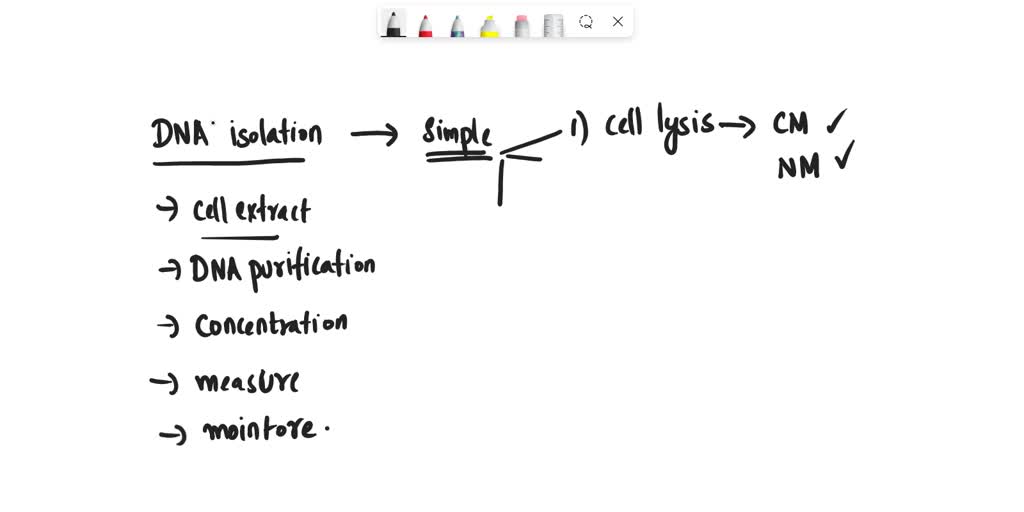 DNA isolation → Simple 1) cell lysis → CM ✓
NM ✓
→ cell extract
→ DNA purification
→ Concentration
→ measure
→ mointore.